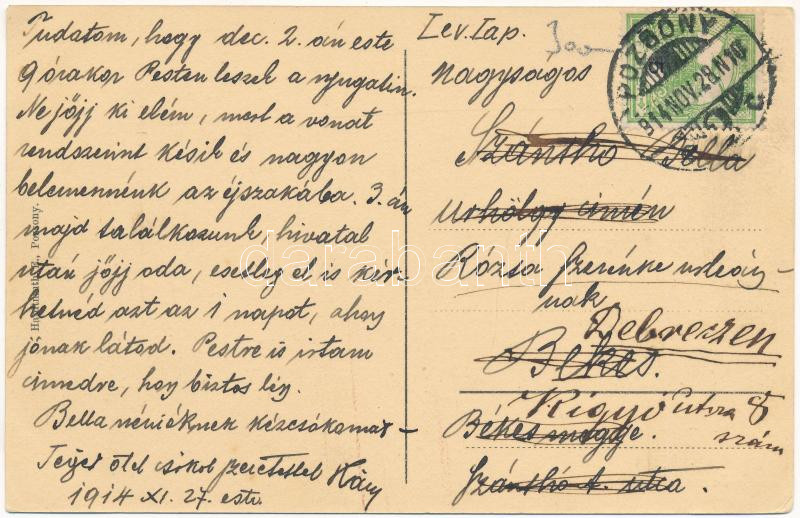 Tudatom, hogy dec. 2.-án este
9 órakor Pesten leszek a nyugatin.
Ne jőjj ki elém, mert a vonat
rendszerint késik és nagyon
belemennénk az éjszakába. 3.-án
majd találkozunk, hivatal
után jőjj oda, esetleg el is kér-
hetnéd azt az 1 napot, ahogy
jónak látod. Pestre is irtam
cimedre, hogy biztos légy.
Bella néniéknek kézcsókomat –
Téged ölel csókol szeretettel
1914 XI. 27. este.
Pozsony.
Lev. Lap.
300
Nagyságos
Szánthó Bella
urhölgy címén
Rózsa Szerénke urleány-
nak
Debreczen
Békés.
Kígyó utcza 8
szám
Békés megye.
Szánthó A. utca.
POZSONY
914 NOV. 28. N 10
C
darabanth